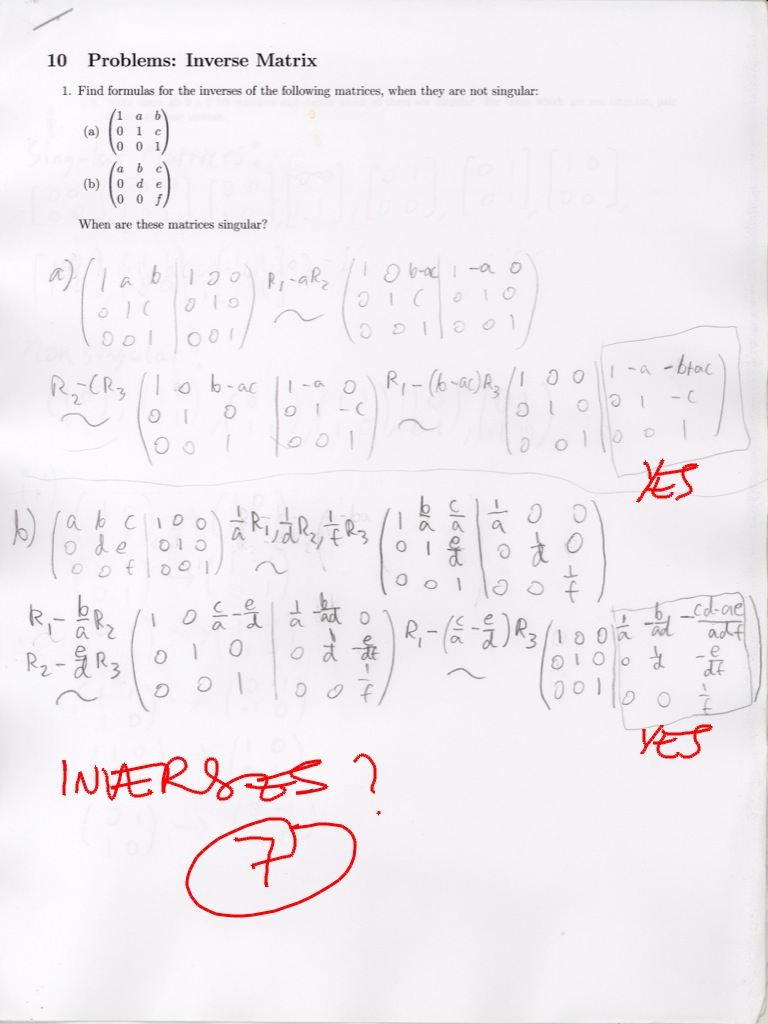 10 Problems: Inverse Matrix
1. Find formulas for the inverses of the following matrices, when they are not singular:
(a) (1 a b
0 1 c
0 0 1)
(b) (a b c
0 d e
0 0 f)
When are these matrices singular?
a) (1 a b | 1 0 0
0 1 c | 0 1 0
0 0 1 | 0 0 1)
R₁-aR₂ ~
(1 0 b-ac | 1 -a 0
0 1 c | 0 1 0
0 0 1 | 0 0 1)
R₂-cR₃ ~
(1 0 b-ac | 1 -a 0
0 1 0 | 0 1 -c
0 0 1 | 0 0 1)
R₁-(b-ac)R₃ ~
(1 0 0 | 1 -a -b+ac
0 1 0 | 0 1 -c
0 0 1 | 0 0 1)
YES
b) (a b c | 1 0 0
0 d e | 0 1 0
0 0 f | 0 0 1)
1/a R₁, 1/d R₂, 1/f R₃ ~
(1 b/a c/a | 1/a 0 0
0 1 e/d | 0 1/d 0
0 0 1 | 0 0 1/f)
R₁-b/a R₂
R₂-e/d R₃ ~
(1 0 c/a-e/d | 1/a -b/ad 0
0 1 0 | 0 1/d -e/df
0 0 1 | 0 0 1/f)
R₁-(c/a-e/d)R₃ ~
(1 0 0 | 1/a -b/ad -cd-ae/adf
0 1 0 | 0 1/d -e/df
0 0 1 | 0 0 1/f)
YES
INVERSES?
7